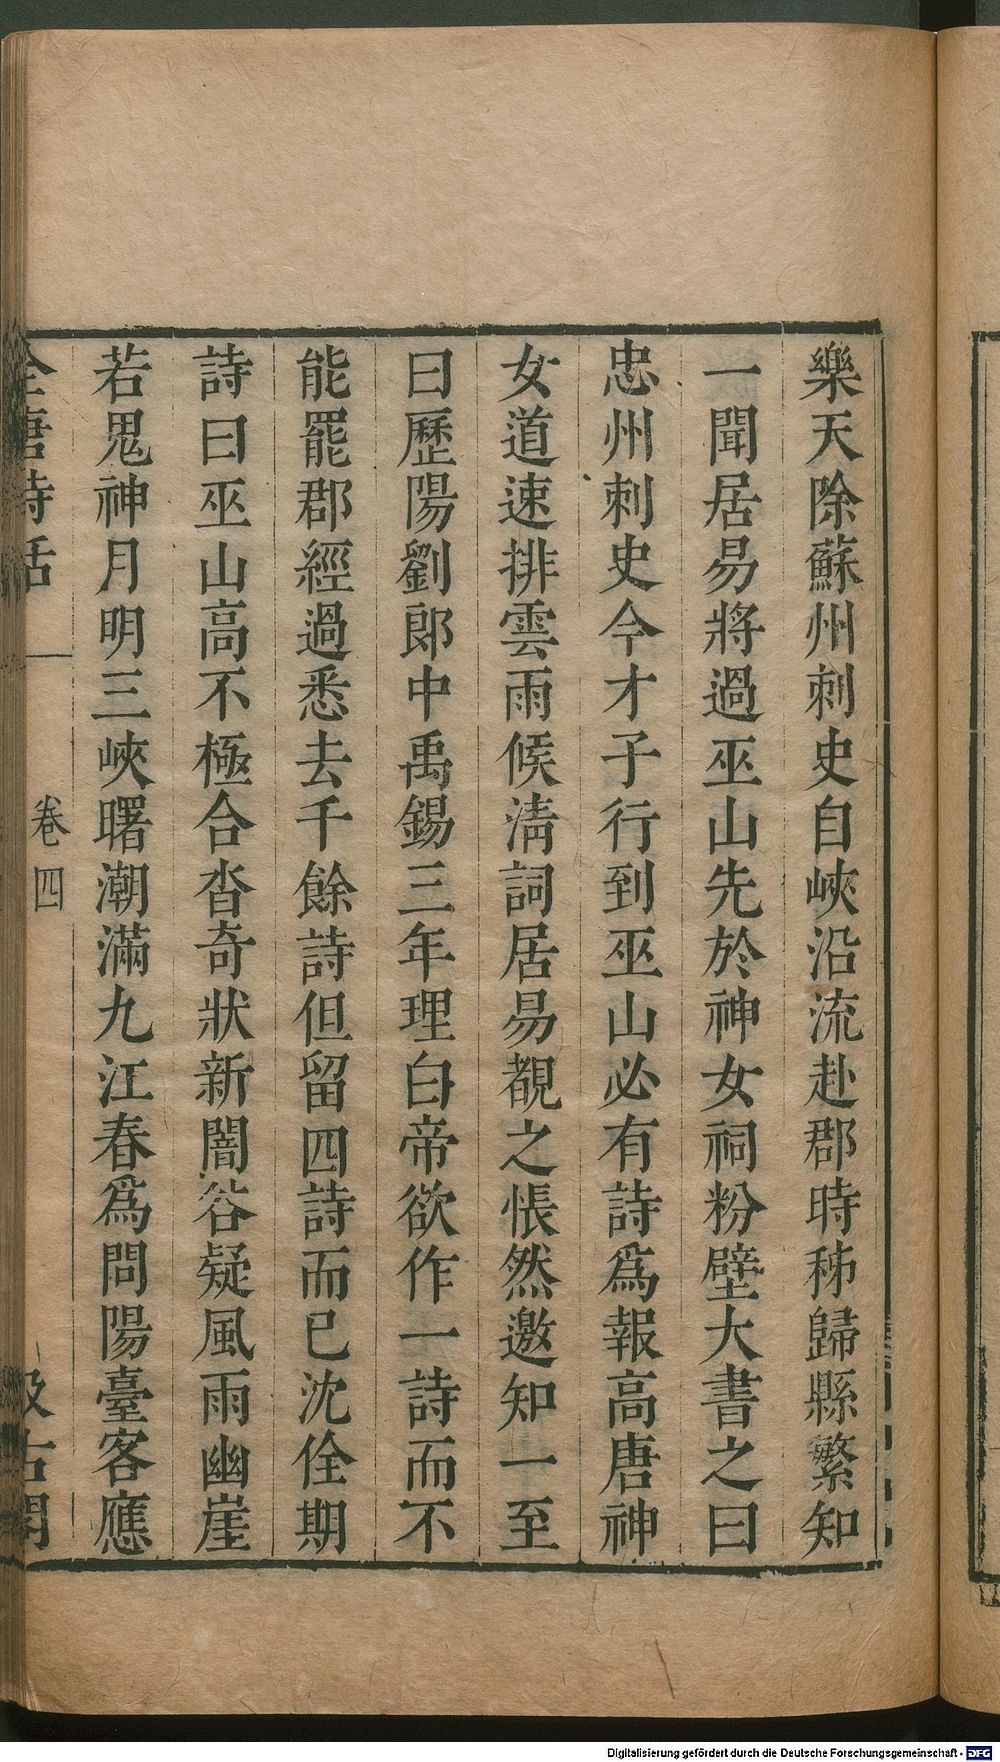 樂天除蘇州刺史自峽沿流赴郡時秭歸縣繁知
一聞居易將過巫山先於神女祠粉壁大書之曰
忠州刺史今才子行到巫山必有詩爲報高唐神
女道速排雲雨候清詞居易覩之悵然邀知一至
曰歷陽劉郎中禹錫三年理白帝欲作一詩而不
能罷郡經過悉去千餘詩但留四詩而已沈佺期
詩曰巫山高不極合沓奇狀新闇谷疑風雨幽崖
若鬼神月明三峽曙潮滿九江春爲問陽臺客應
全唐詩話 卷四 汲古閣
Digitalisierung gefördert durch die Deutsche Forschungsgemeinschaft - DFG